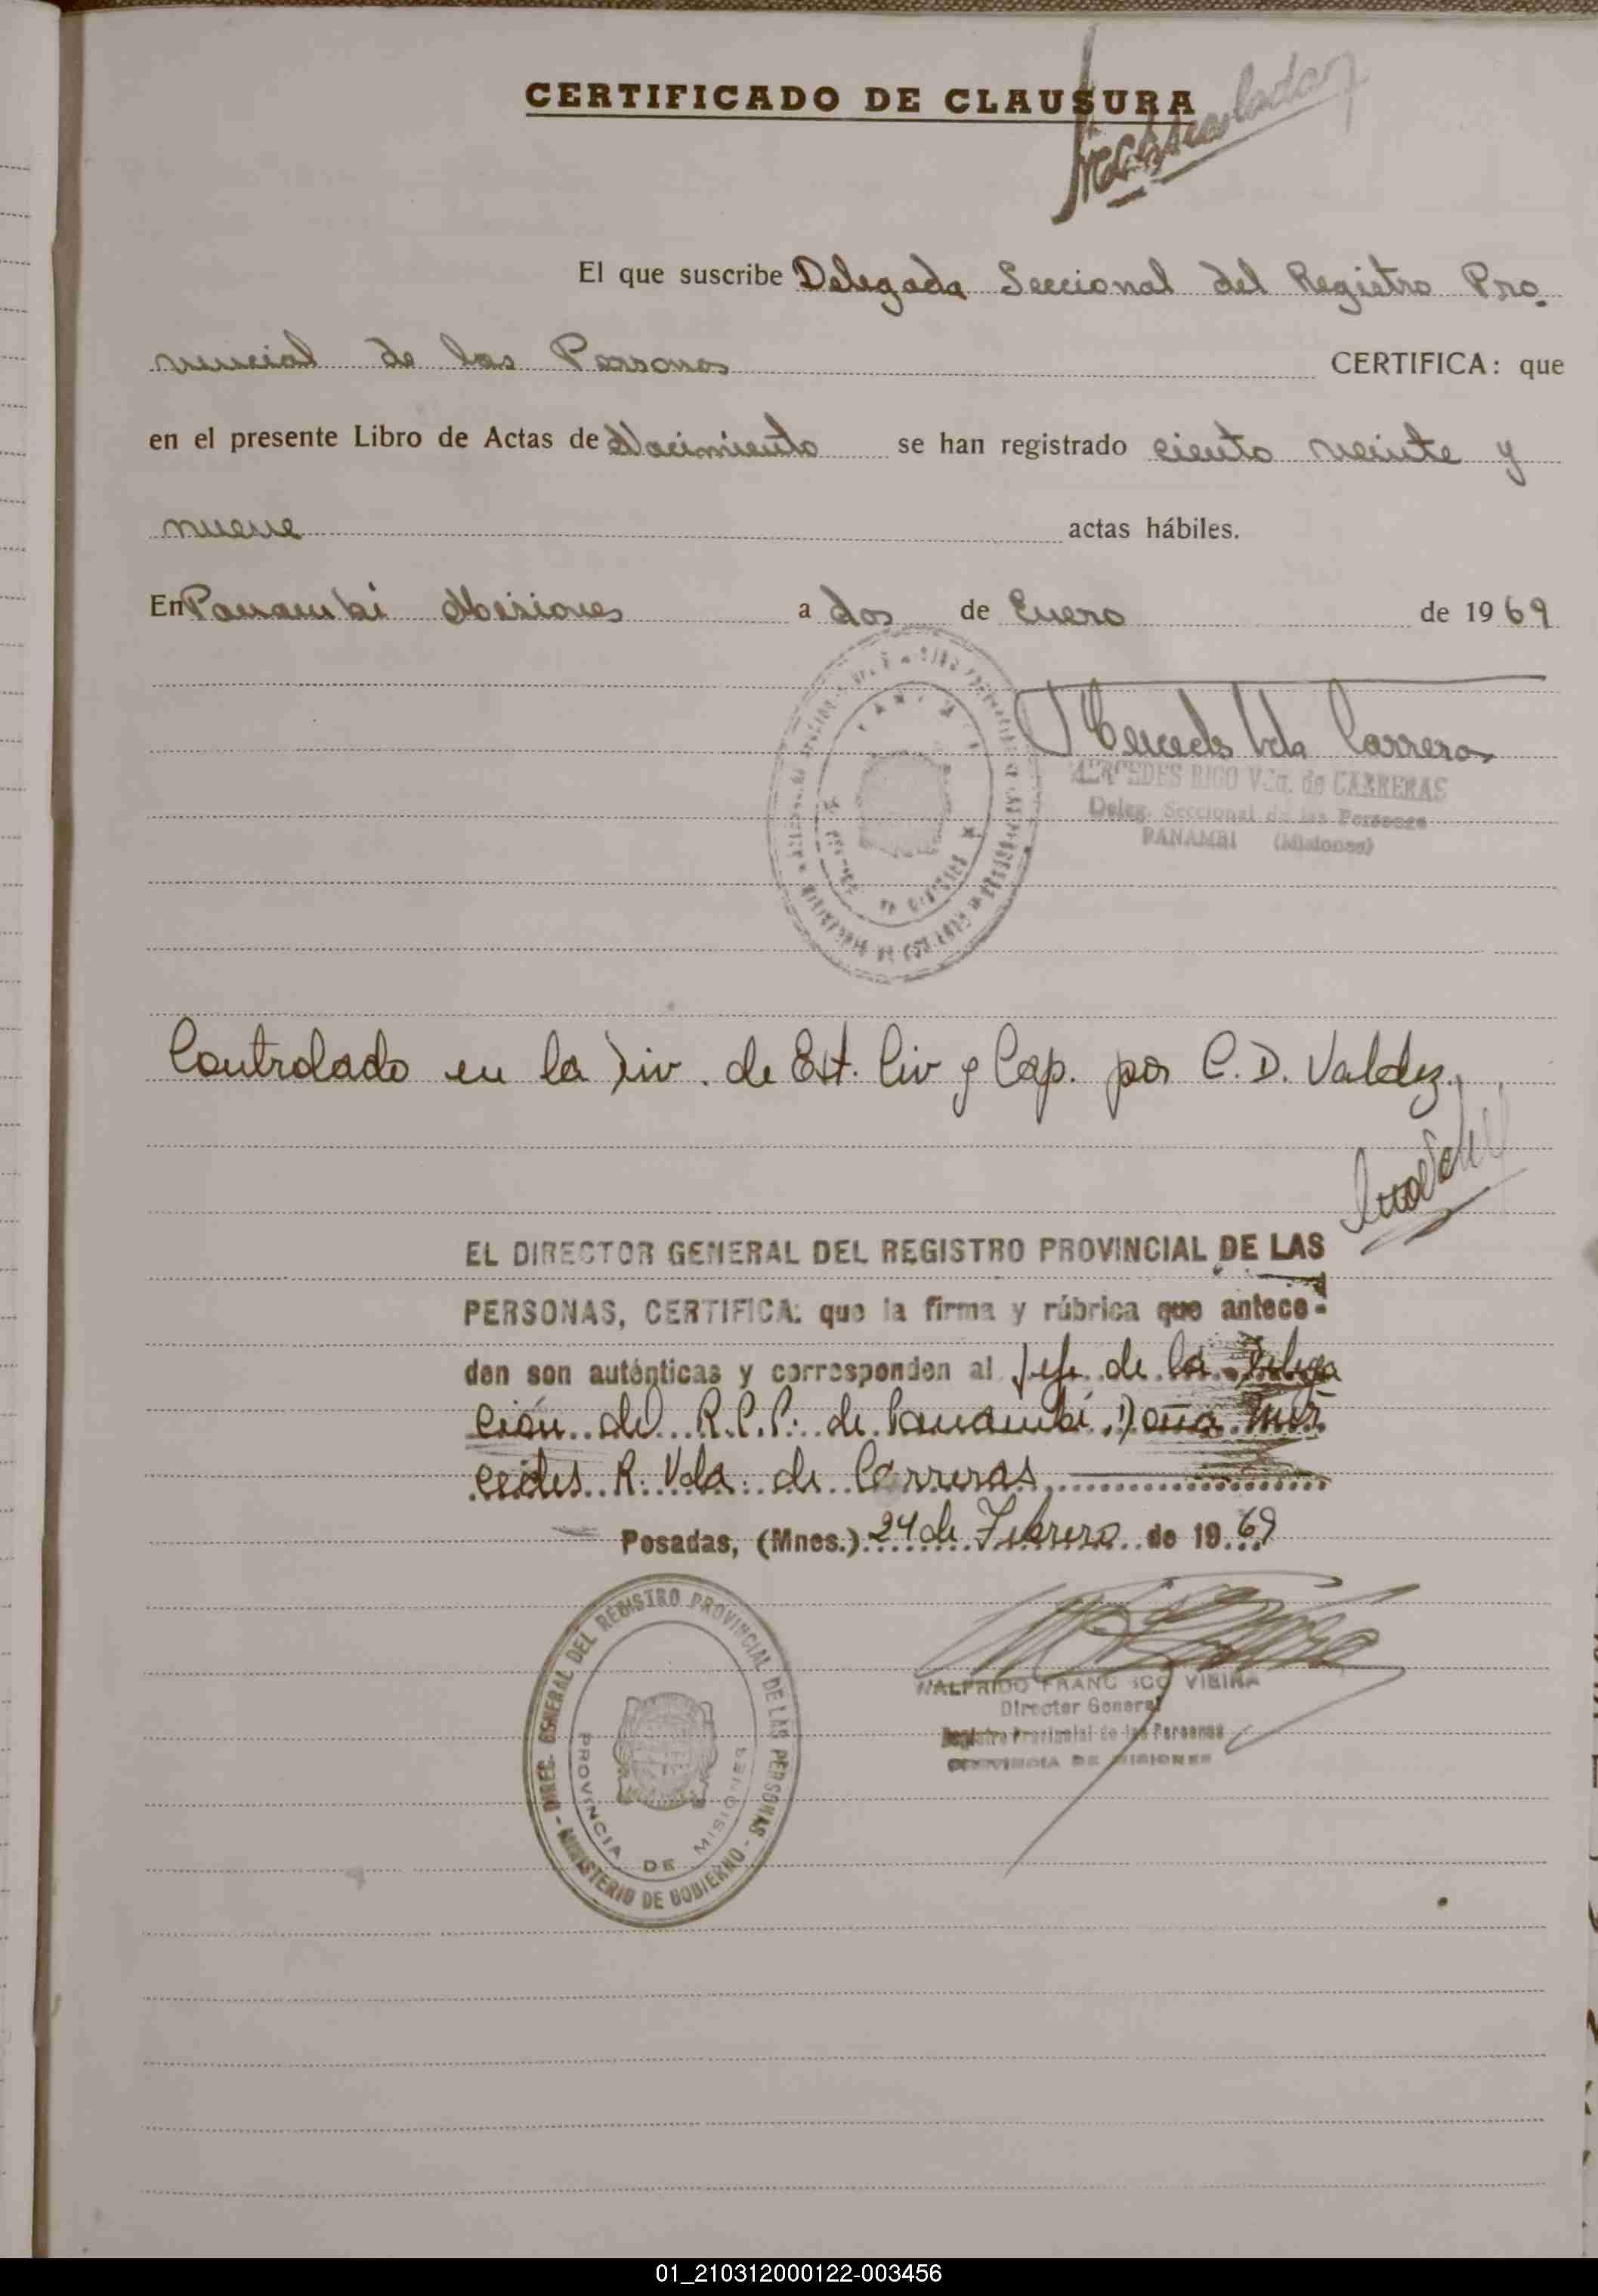 CERTIFICADO DE CLAUSURA
El que suscribe Delegada Seccional del Registro Pro
vincial de las Personas CERTIFICA: que
en el presente Libro de Actas de Nacimiento se han registrado ciento veinte y
nueve actas hábiles.
En Panambi Misiones a dos de Enero de 1969
Mercedes Vda Carreras
MERCEDES RICO Vda. de CARRERAS
Deleg. Seccional de las Personas
PANAMBI (Misiones)
Controlado en la Div. de Est. Civ y Cap. por C. D. Valdez.
EL DIRECTOR GENERAL DEL REGISTRO PROVINCIAL DE LAS
PERSONAS, CERTIFICA: que la firma y rúbrica que antece-
den son auténticas y corresponden al Jefe de la Delega
ción del R.P.P. de Panambí Doña Mer
cedes R. Vda. de Carreras
Posadas, (Mnes.) 24 de Febrero de 1969
DIREC. GENERAL DEL REGISTRO PROVINCIAL DE LAS PERSONAS - MINISTERIO DE GOBIERNO -
PROVINCIA DE MISIONES
WALFRIDO FRANCISCO VIEIRA
Director General
Registro Provincial de las Personas
PROVINCIA DE MISIONES
01_210312000122-003456